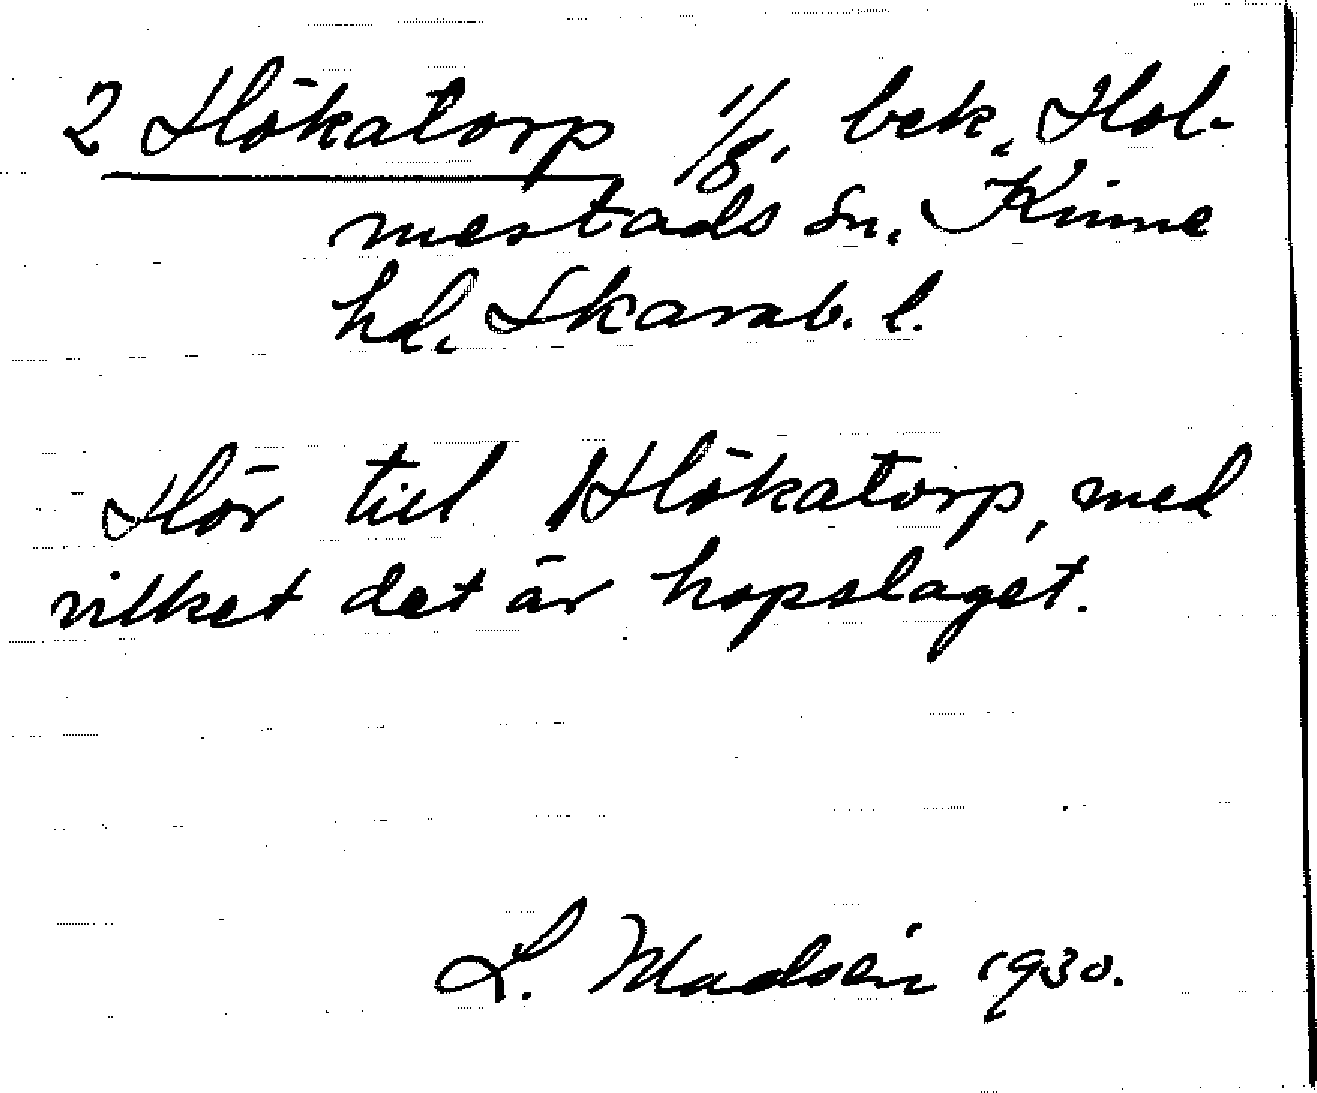 2 Hökatorp 1/8, bek. Hol-
mestads sn. Kinne
hd. Skarab. l.
Hör till 1 Hökatorp, med
vilket det är hopslaget.
L. Madsén 1930.